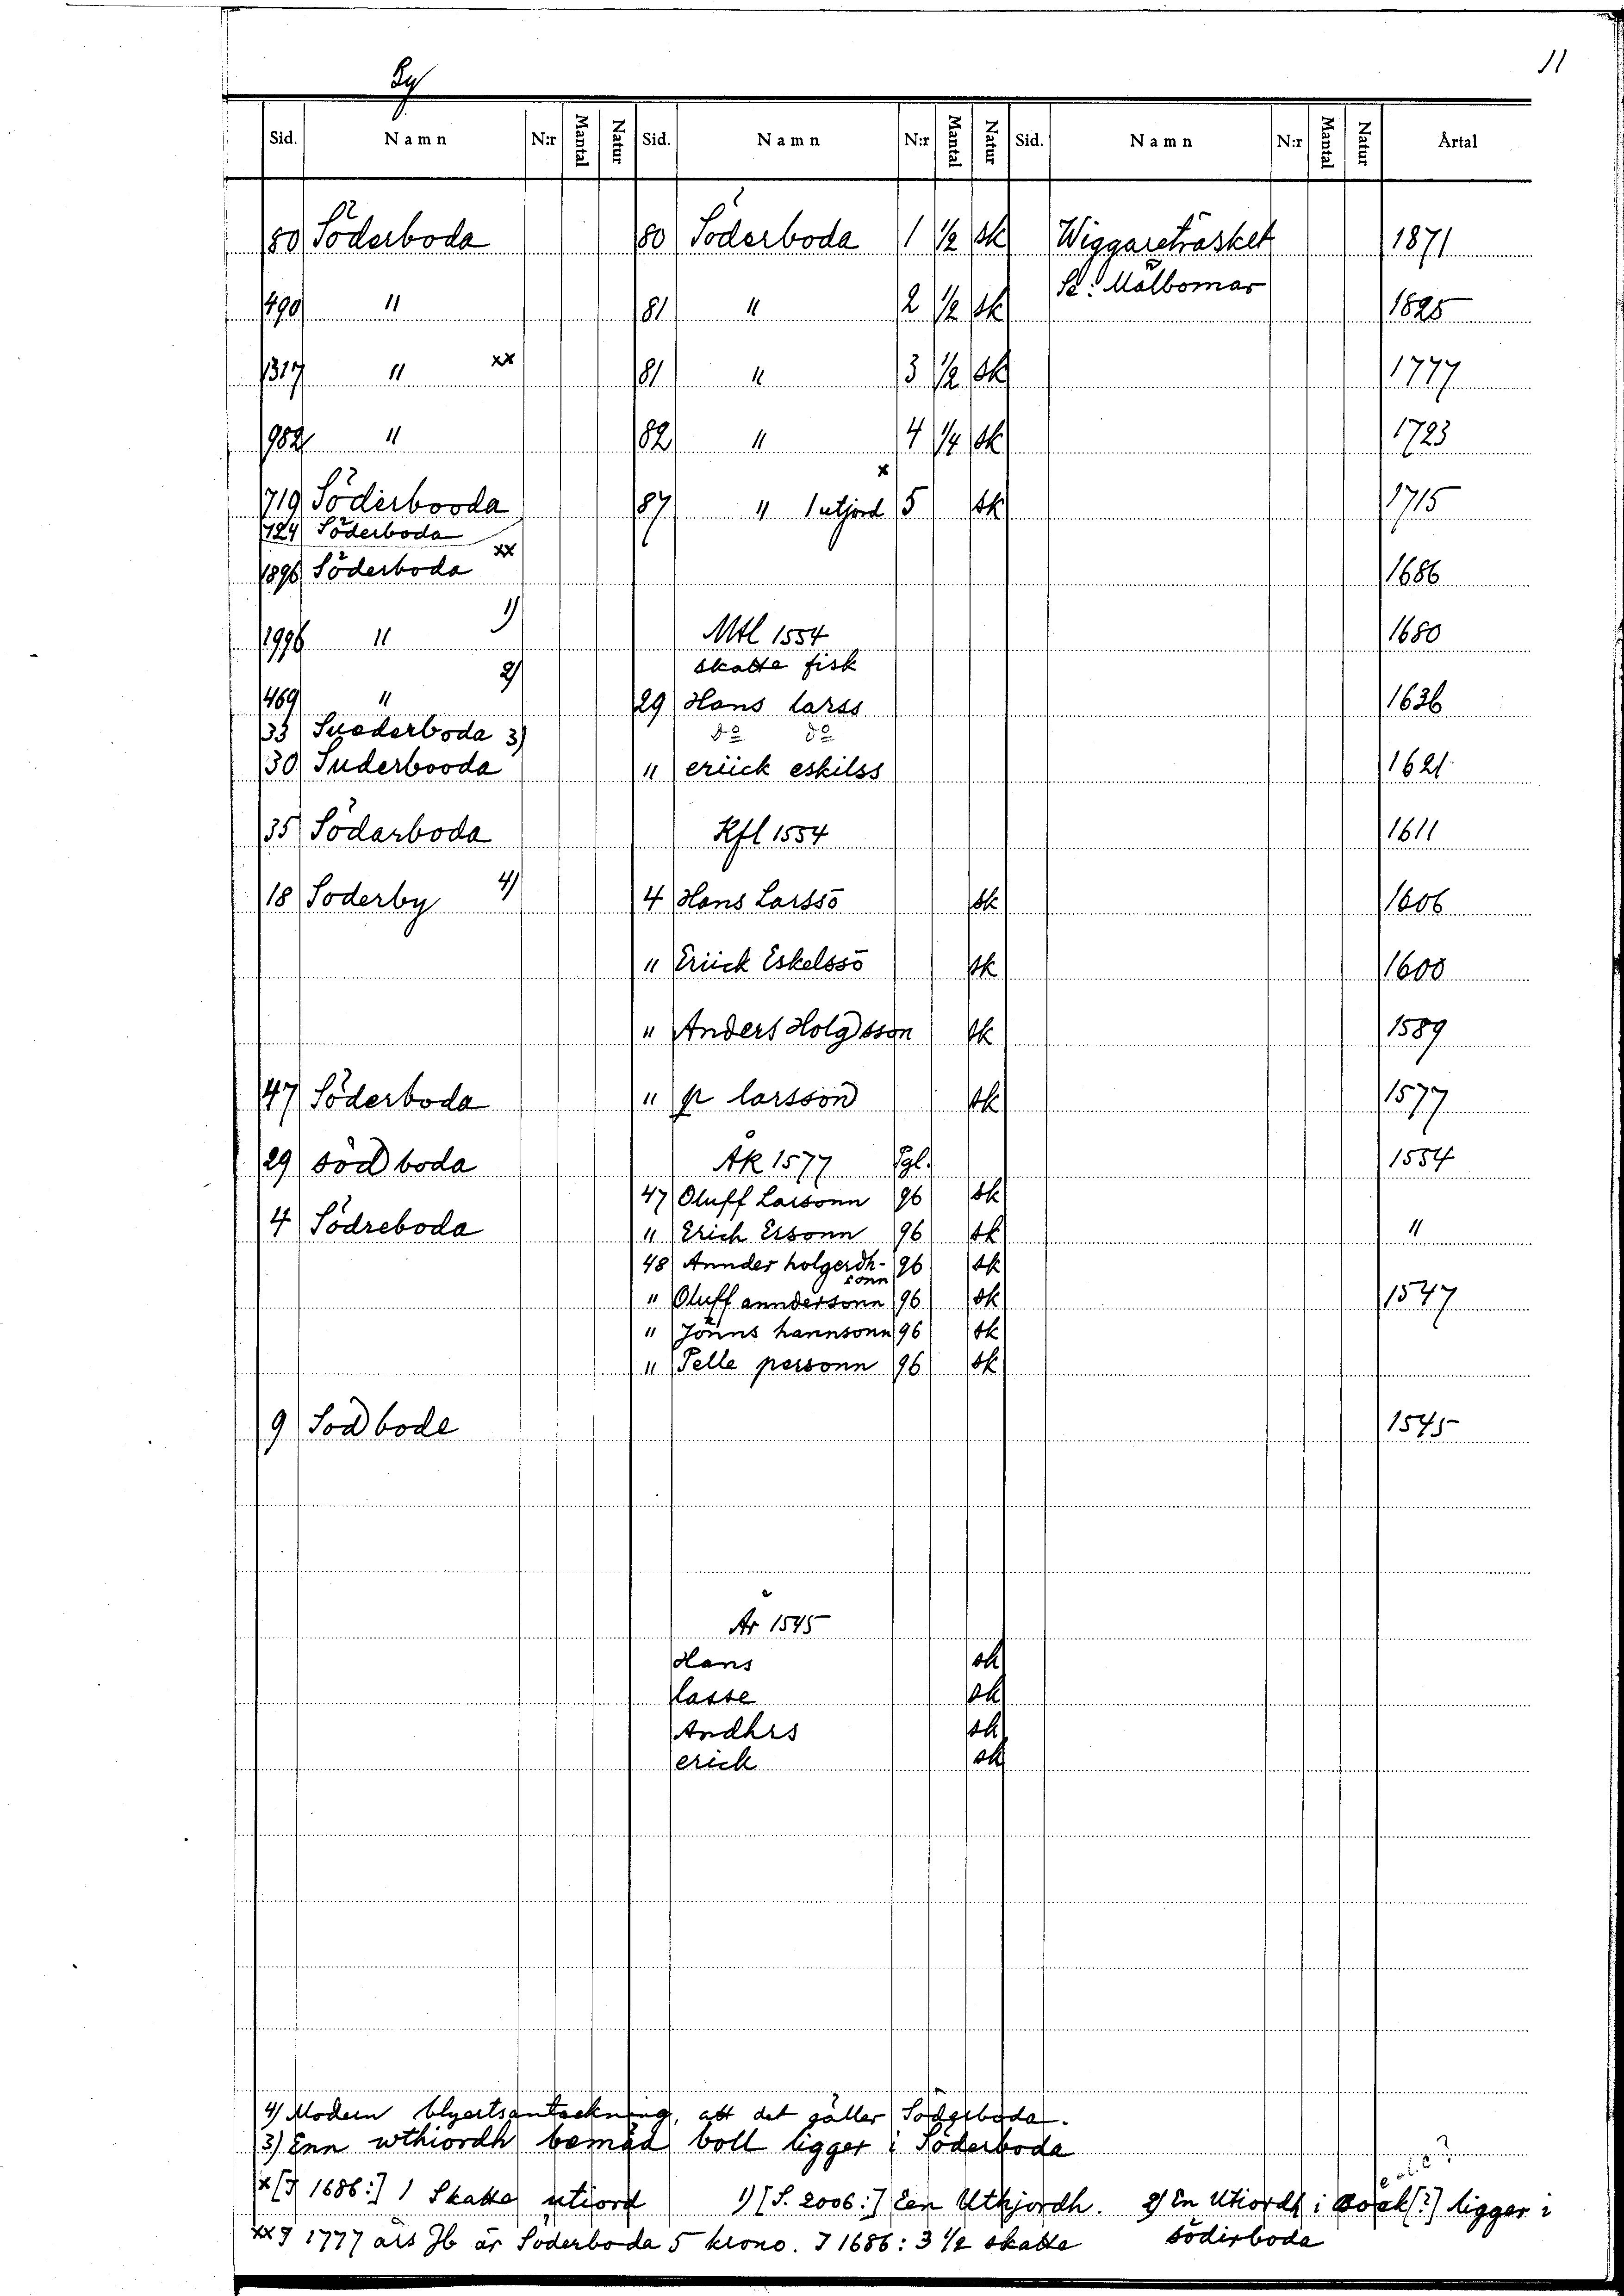 11
By
Sid. Namn N:r Mantal Natur Sid. Namn N:r Mantal Natur Sid. Namn N:r Mantal Natur Årtal
80 Söderboda 80 Söderboda 1 1/2 sk Wiggareträsket 1871
Se: Målbomar
490 " 81 " 2 1/2 sk 1825
1317 " xx 81 " 3 1/2 sk 1777
982 " 82 " 4 1/4 sk 1723
719 Söderbooda 87 " 1 utjord x 5 sk 1715
724 Söderboda
1896 Söderboda xx 1686
1996 " 1) Mtl 1554 1680
skatte fisk
469 " 2) 29 Hans larss 1636
33 Suederboda 3) do do
30 Suderbooda " eriick eskilss 1621
35 Södarboda Kfl 1554 1611
18 Soderby 4) 4 Hans Larssō sk 1606
" Eriick Eskelssō sk 1600
" Anders Holgsson sk 1589
47 Söderboda " p larsson sk 1577
29 söd boda ÄK 1577 Pgl. 1554
47 Oluff Larsonn 96 sk
4 Södreboda " Erich Ersonn 96 sk "
48 Annder holgerdh-sonn 96 sk
" Oluff anndersonn 96 sk 1547
" Jönns hannsonn 96 sk
" Pelle personn 96 sk
9 Sod bode 1545
År 1545
Hans sk
lasse sk
Andhrs sk
erich sk
4) Modern blyertsanteckning, att det gäller Söderboda.
3) Enn wthiordh bemäd boll ligger i Söderboda
x [I 1686:] 1 Skatte utiord 1) [S. 2006:] Een Uthjordh. 2) En Utiordh i [?] ligger i
söderboda
xx I 1777 års Jb är Söderboda 5 krono. I 1686: 3 1/2 skatte